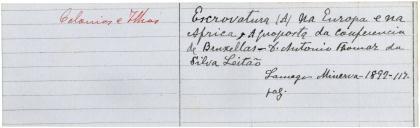 Colonias e Ilhas
Escrovatura (A) na Europa e na
Africa, A proposto da Conferencia
de Bruxellas - D. Antonio Thomaz da
Silva Leitão
Lamego Minerva - 1892 - 117.
pag.